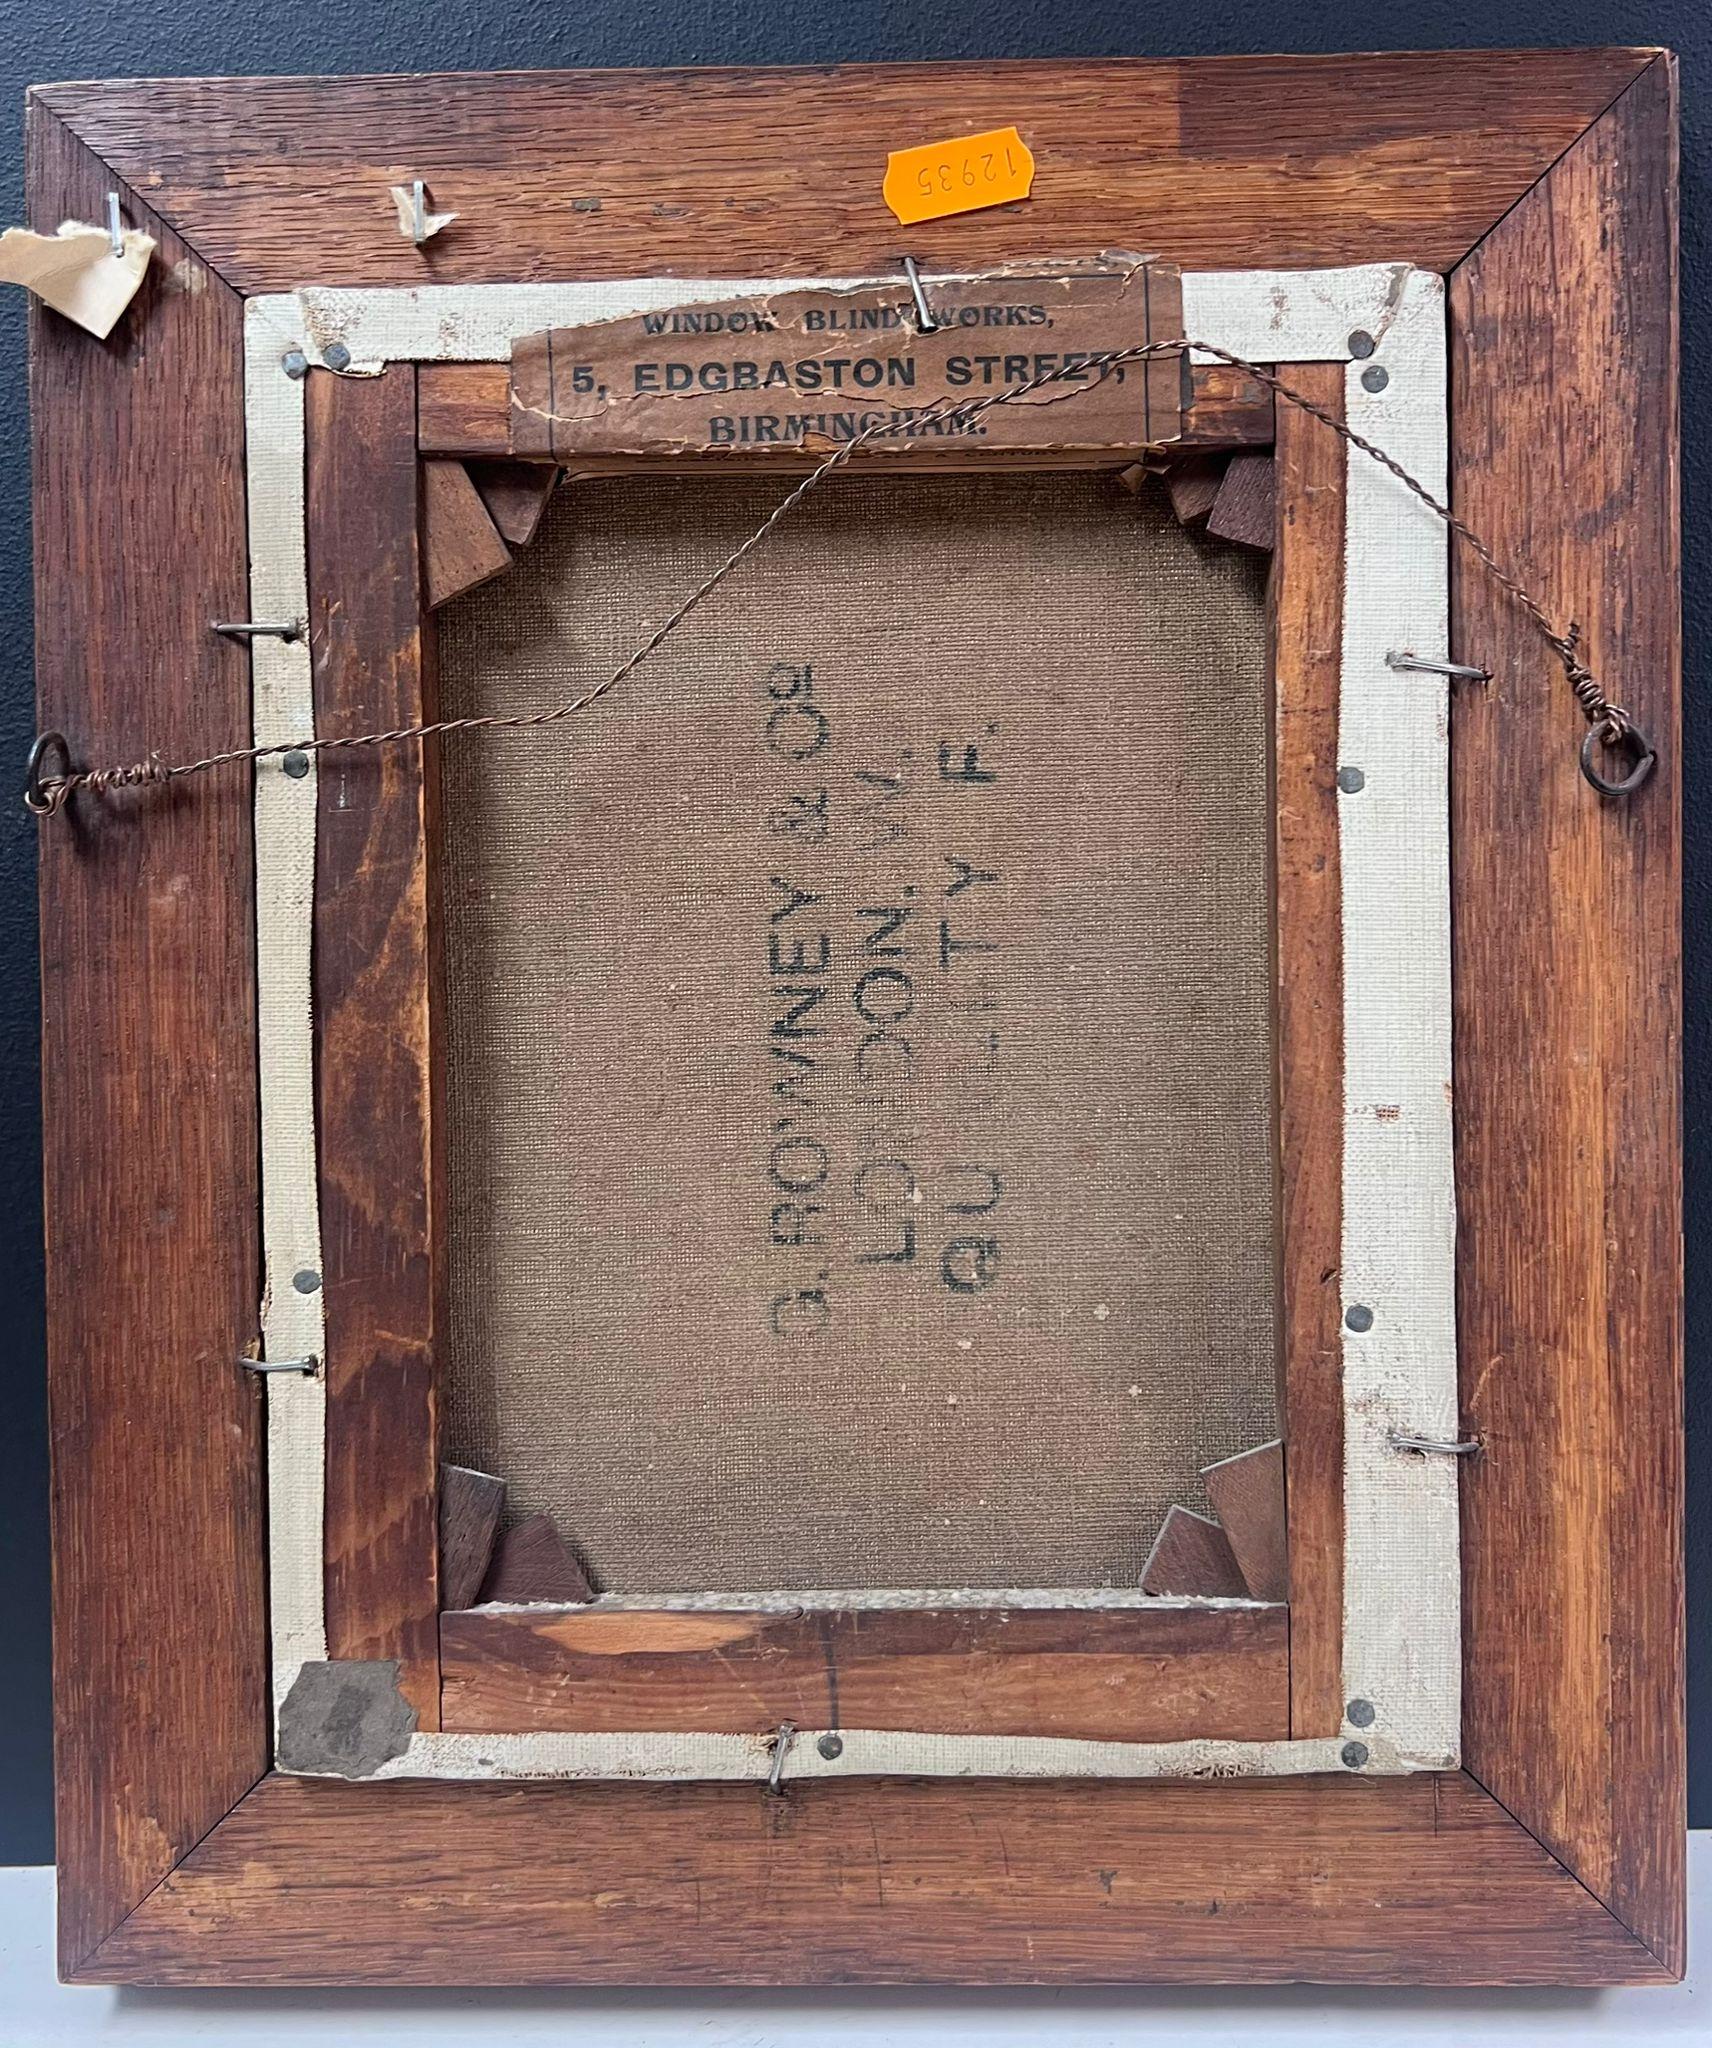 12935
WINDOW BLIND WORKS,
5, EDGBASTON STREET,
BIRMINGHAM.
G. ROWNEY & Co
LONDON. W.
QUALITY F.